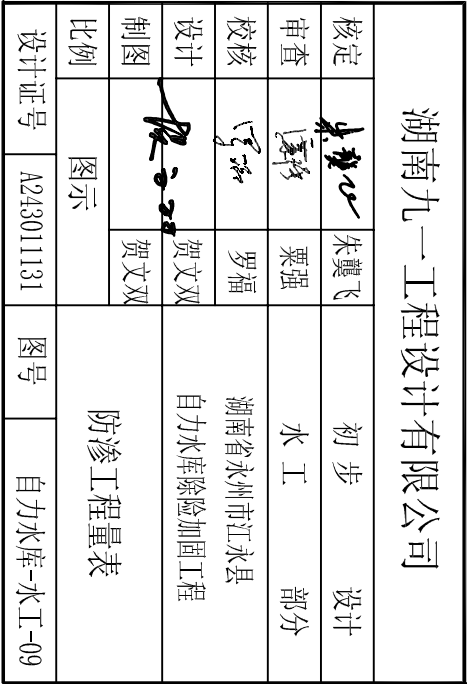 湖南九一工程设计有限公司
核定 朱龑飞 初步 设计
审查 粟强 水工 部分
校核 罗福 湖南省永州市江永县
设计 贺文双 自力水库除险加固工程
制图 贺文双 防渗工程量表
比例 图示
设计证号 A243011131 图号 自力水库-水工-09